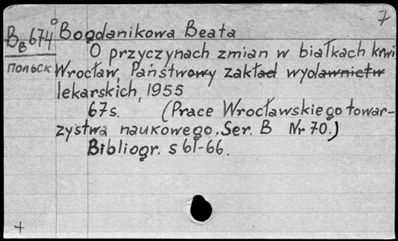 7
B_B 674° Bogdanikowa Beata
О przyczynach zmian w białkach krwi
польск Wrocław, Państwowy zakład wydawnictw
lekarskich, 1955
67s. (Prace Wrocławskiego towar-
zystwa naukowego. Ser. B Nr 70.)
Bibliogr. s 61-66.
+